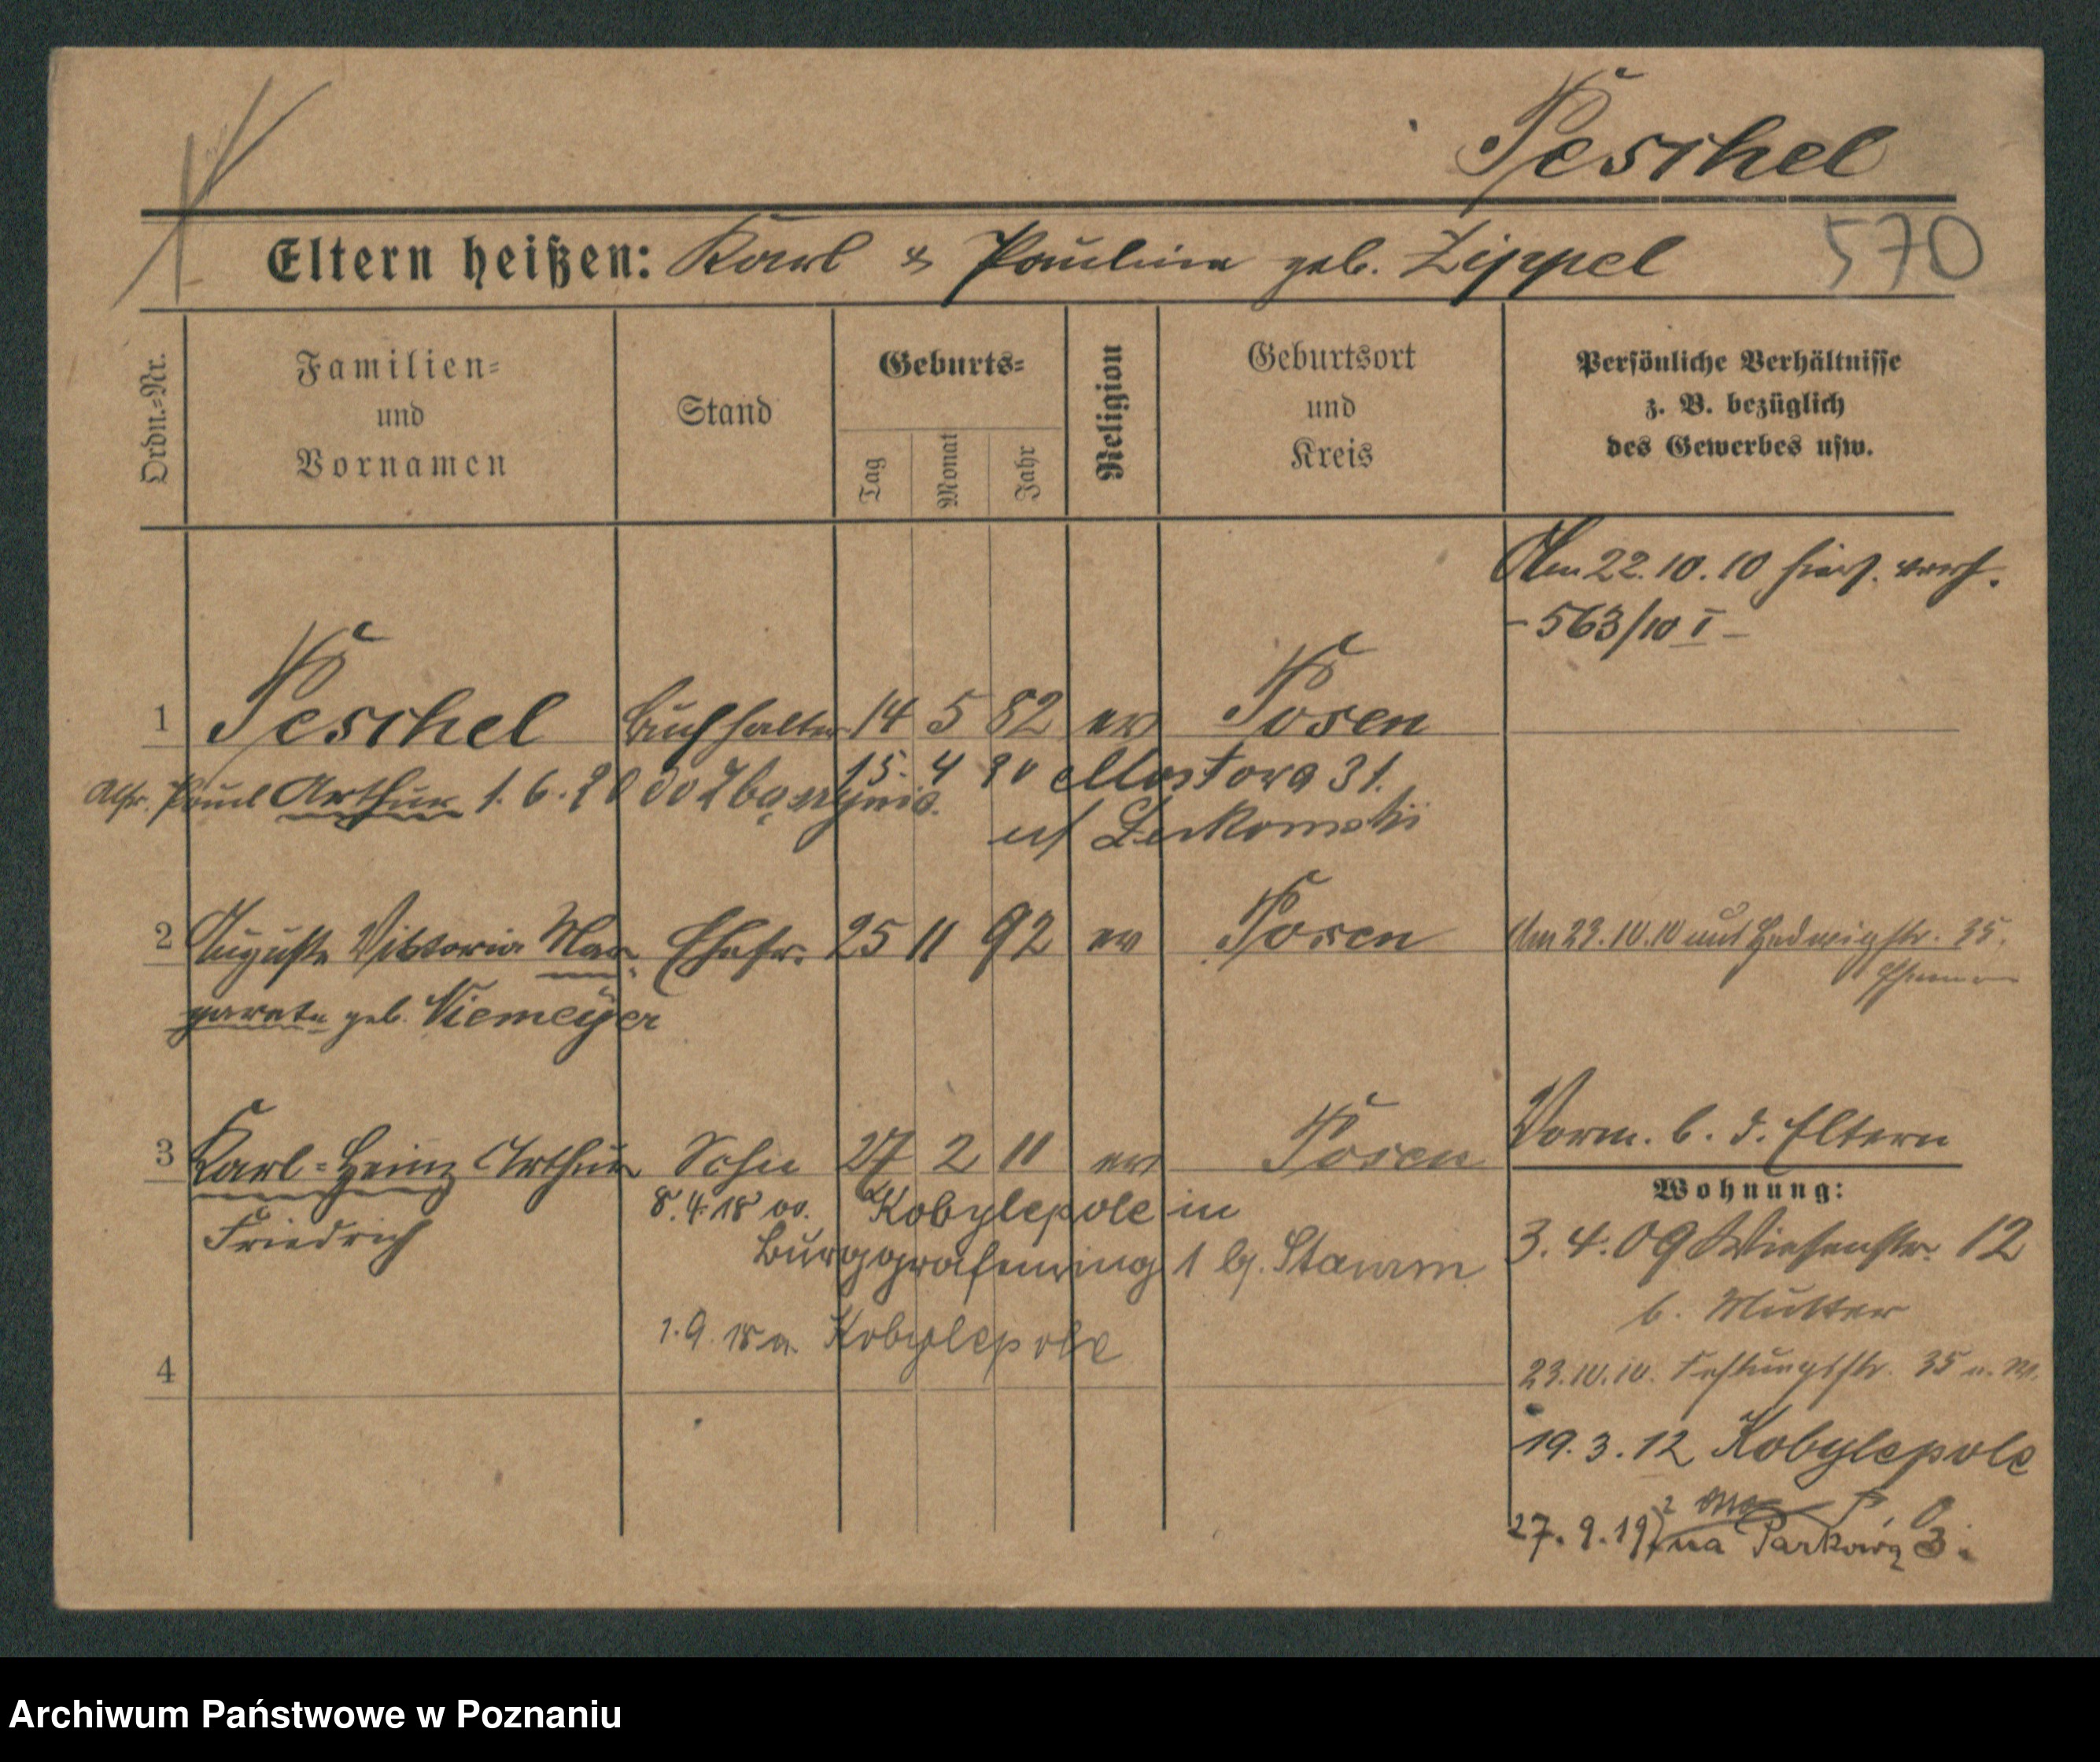 Peschel
Eltern heißen: Karl & Pauline geb. Zippel 570
Ordn.-Nr.
Familien-
und
Vornamen
Stand
Geburts-
Tag
Monat
Jahr
Religion
Geburtsort
und
Kreis
Persönliche Verhältnisse
z. B. bezüglich
des Gewerbes usw.
Am 22.10.10 hies. verh.
- 563/10 I -
1 Peschel Buchhalter 14 5 82 ev Posen
Paul Arthur 1.6.20 do
15. 4 20 Mostowa 31.
2 Auguste Viktoria Mar- Ehefr. 25 11 92 ev Posen
Am 23.10.10 aus Hedwigstr. 35.
garete geb. Niemeyer
3 Karl-Heinz Arthur Sohn 27 2 11 ev Posen
Friedrich
Vorm. b. d. Eltern
8.4.18 Kobylepole in
Burggrafenring 1 b. Stamm
1.9.18 Kobylepole
4
Wohnung:
3.4.09 Wiesenstr. 12
b. Mutter
23.10.10. Festungsstr. 35
19.3.12 Kobylepole
27.9.19 na Parkową 3.
Archiwum Państwowe w Poznaniu